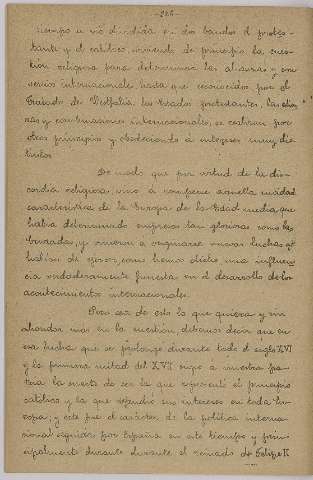 -286-
tiempo se vió dividida en dos bandos el protes-
tante y el católico, sirviendo de principio la cues-
tión religiosa para determinar las alianzas y con-
venios internacionales hasta que reconocidos por el
Tratado de Westfalia, los Estados protestantes, las alian-
zas y combinaciones internacionales, se realizan por
otros principios y obedeciendo á intereses muy dis-
tintos.
De modo que por virtud de la dis-
cordia religiosa, vino á romperse aquella unidad
característica de la Europa de la Edad media, que
había determinado empresas tan gloriosas como las
Cruzadas, y vinieron á originarse nuevas luchas qe
habían de ejercer, como hemos dicho una influen-
cia verdaderamente funesta en el desarrollo de los
acontecimientos internacionales.
Pero sea de esto lo que quiera y sin
ahondar más en la cuestión, debemos decir que en
esa lucha que se prolonga durante todo el siglo XVI
y la primera mitad del XVII cupo a nuestra pa-
tria la suerte de ser la que representó el principio
católico y la que defendió sus intereses en toda Eu-
ropa; y este fué el carácter de la política interna-
cional seguida por España en este tiempo y prin-
cipalmente durante durante el reinado de Felipe II